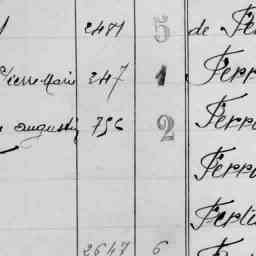 2481 5 de
Pierre Marie 247 1 Ferr
augustin 756 2 Ferr
Ferr
Ferl
2647 6